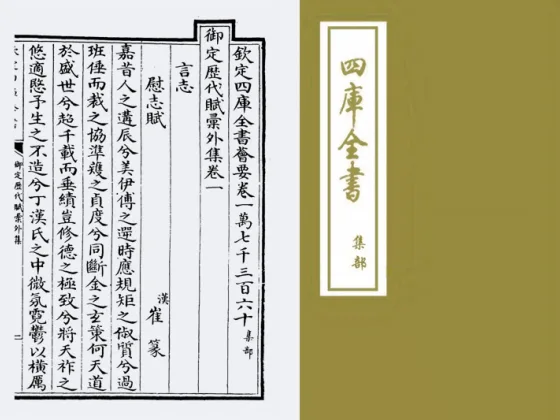 欽定四庫全書薈要卷一萬七千三百六十 集部
御定歴代賦彙外集卷一
言志
慰志賦 漢 崔篆
嘉昔人之遘辰兮美伊傅之遻時應規矩之淑質兮過
班倕而裁之協準矱之貞度兮同斷金之玄策何天道
於盛世兮超千載而垂績豈修德之極致兮將天祚之
悠適愍予生之不造兮丁漢氏之中微氛霓鬱以橫厲
御定歴代賦彙外集
四庫全書
集部